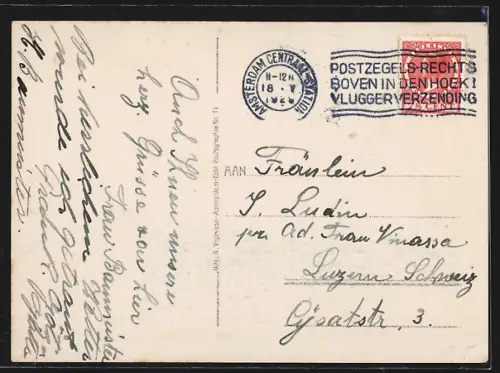 AMSTERDAM CENTRAAL-STATION
11-12 N
18 · V
1929
POSTZEGELS RECHTS
BOVEN IN DEN HOEK!
VLUGGER VERZENDING
AAN
Fräulein
I. Ludin
pr. Ad. Frau Vinassa
Luzern Schweiz
Cysatstr. 3.
Auch Ihnen unsere
herz. Grüsse von hier
Frau Baumeister
Bei herrlichem Wetter
wurde ich getraut
H. Baumeister.